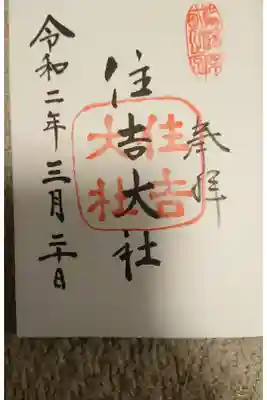 奉拝
住吉大社
令和二年三月二十日
住吉大社